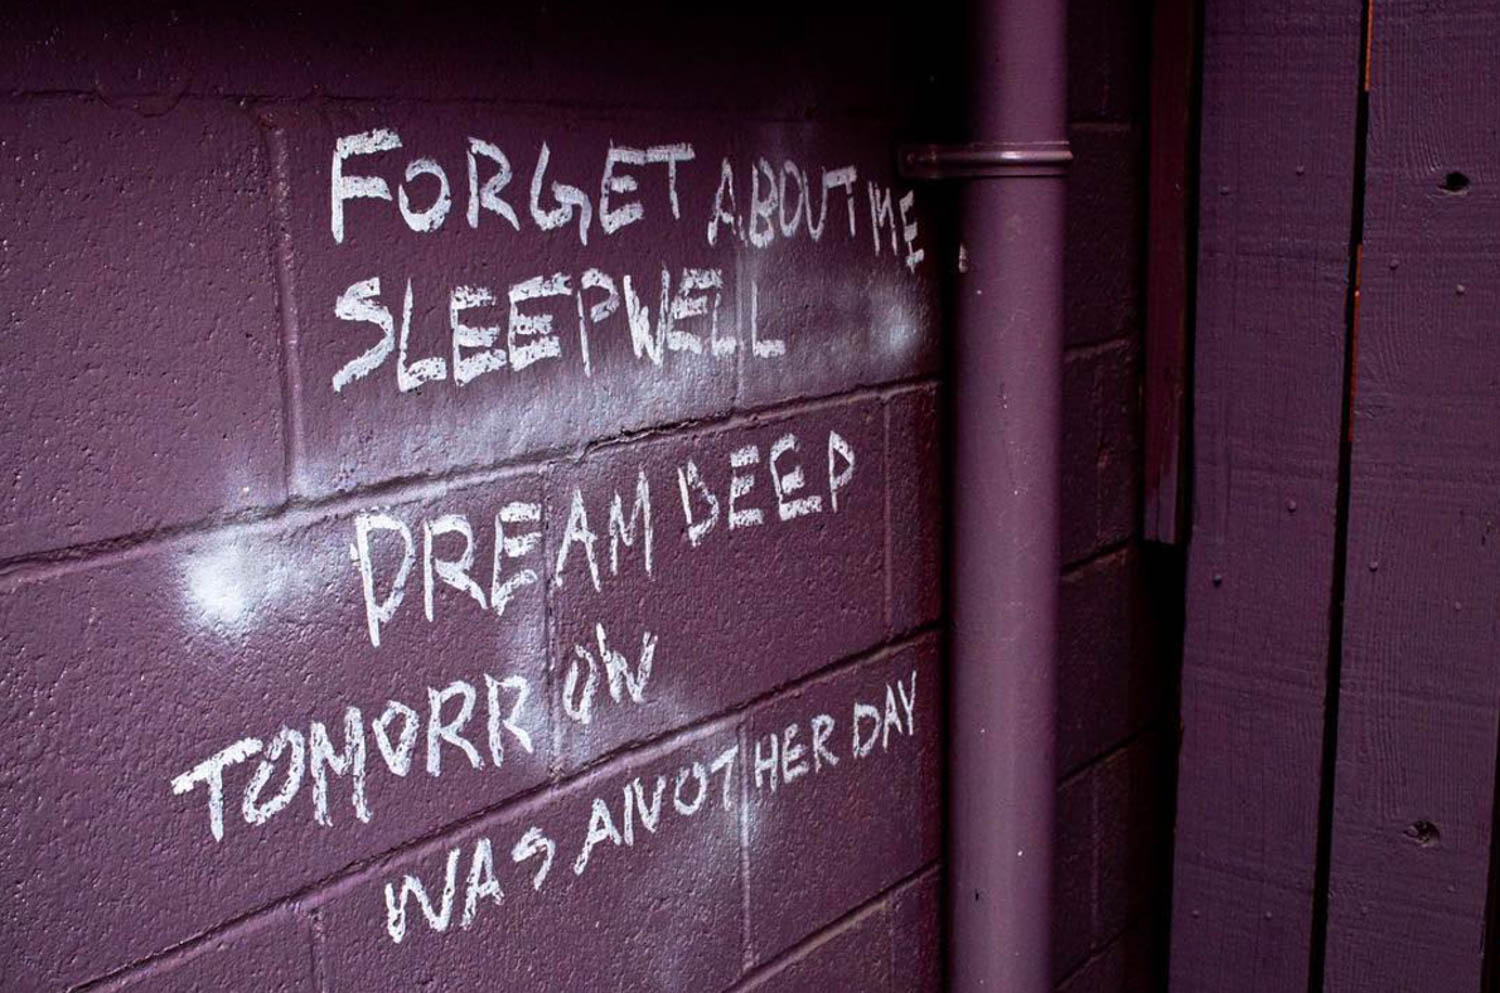 FORGET ABOUT ME.
SLEEP WELL
DREAM DEEP
TOMORROW
WAS ANOTHER DAY